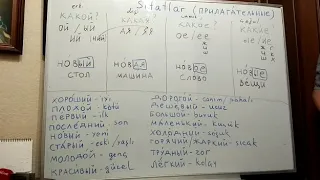 Sıfatlar (ПРИЛАГАТЕЛЬНЫЕ)
КАКОЙ? КАКАЯ? КАКОЕ? КАКИЕ
ОЙ/ЫЙ АЯ/ЯЯ ОЕ/ЕЕ
ИЙ
НОВЫЙ НОВАЯ НОВОЕ НОВЫЕ
СТОЛ МАШИНА СЛОВО ВЕЩИ
ХОРОШИЙ - iyi ДОРОГОЙ - canım/pahalı
ПЛОХОЙ - kötü ДЕШЕВЫЙ - ucuz
ПЕРВЫЙ - ilk БОЛЬШОЙ - büyük
ПОСЛЕДНИЙ - son МАЛЕНЬКИЙ - küçük
НОВЫЙ - yeni ХОЛОДНЫЙ - soğuk
СТАРЫЙ - eski/yaşlı ГОРЯЧИЙ/ЖАРКИЙ - sıcak
МОЛОДОЙ - genç ТРУДНЫЙ - zor
КРАСИВЫЙ - güzel ЛЁГКИЙ - kolay